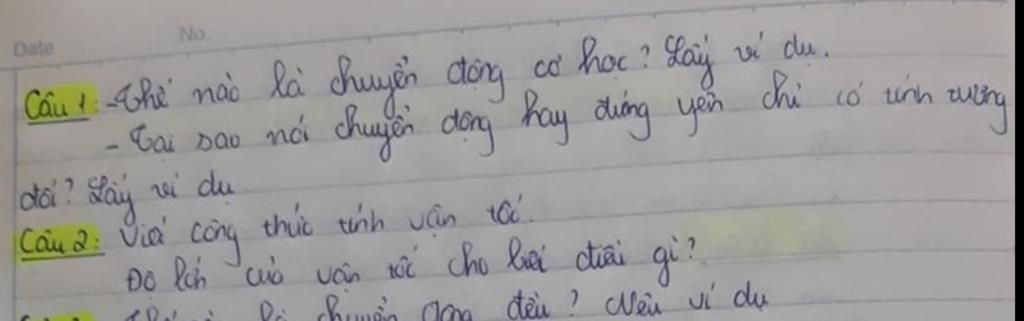 Date No.
Câu 1: - Thế nào là chuyển động cơ học? Lấy ví dụ.
- Tại sao nói chuyển động hay đứng yên chỉ có tính tương
đối? Lấy ví dụ
Câu 2: Viết công thức tính vận tốc.
Độ lớn của vận tốc cho biết điều gì?
là chuyển động đều? Nêu ví dụ